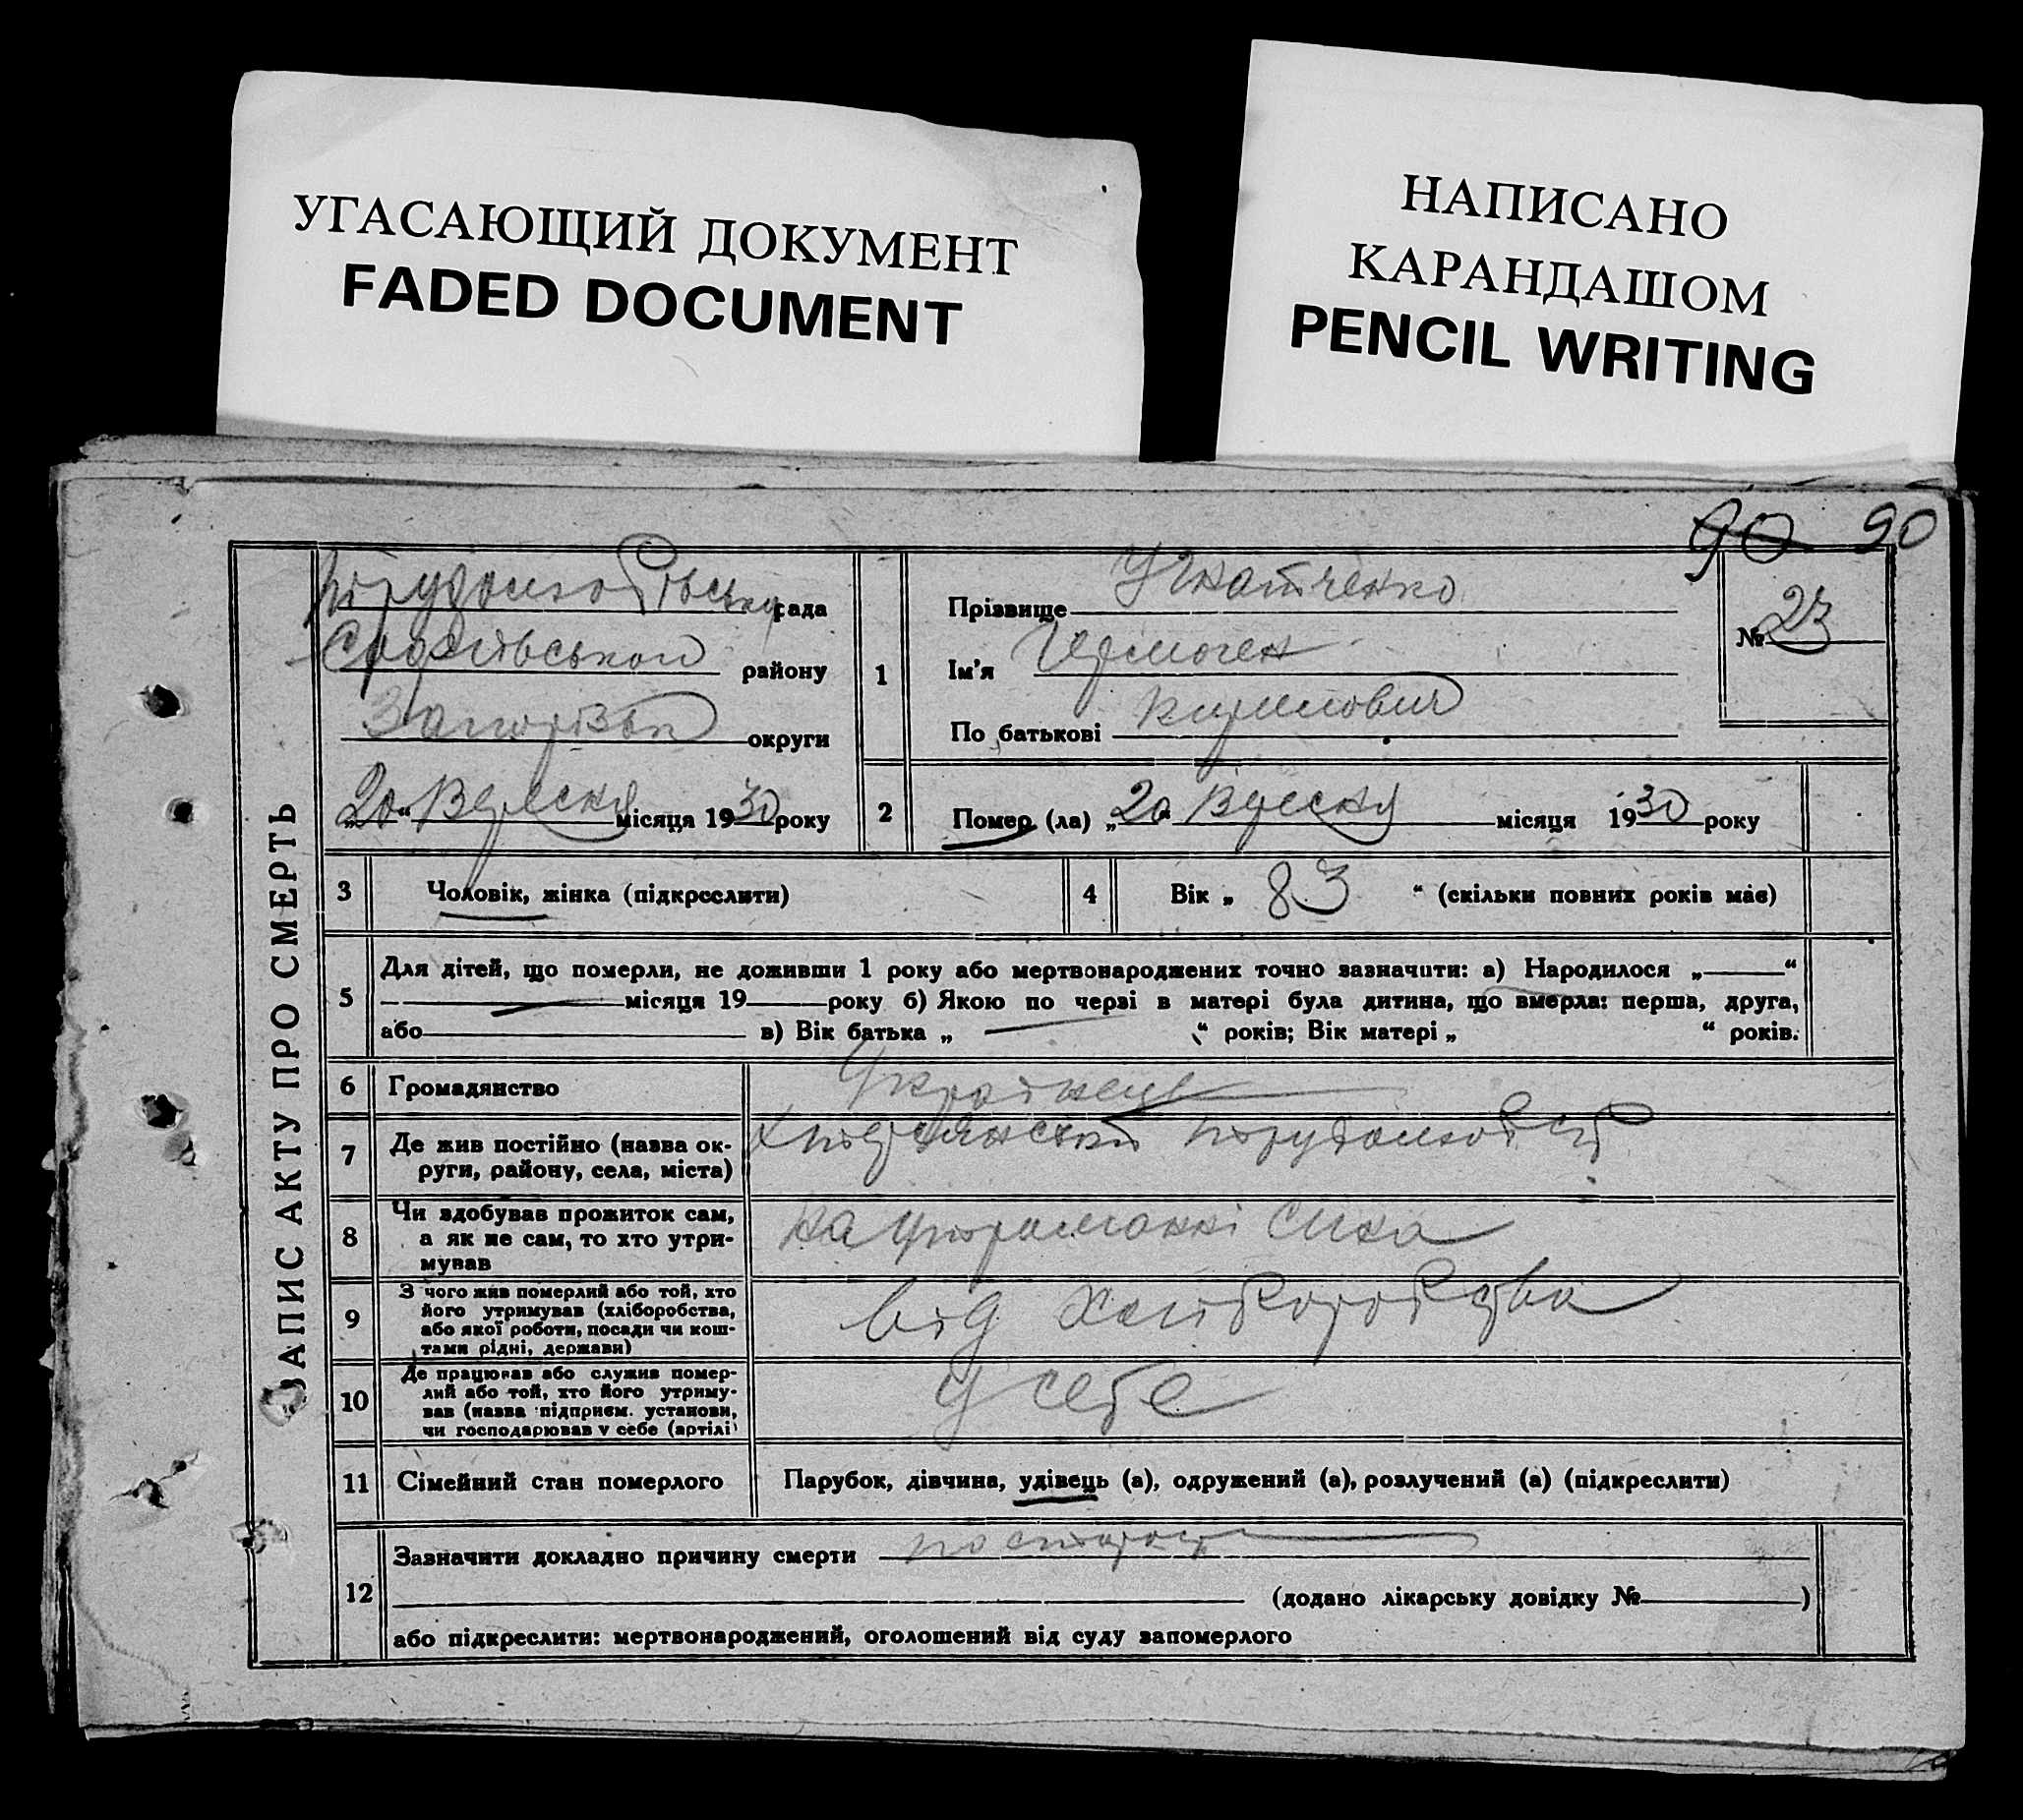 УГАСАЮЩИЙ ДОКУМЕНТ
FADED DOCUMENT
НАПИСАНО
КАРАНДАШОМ
PENCIL WRITING
90 90
ЗАПИС АКТУ ПРО СМЕРТЬ
рада
району
округи
„20“ Вересня місяця 1930 року
1
Прізвище Игнатченко
Ім'я Гермоген
По батькові
№ 23
2 Помер (ла) „20“ Вересня місяця 1930 року
3 Чоловік, жінка (підкреслити)
4 Вік „83“ (скільки повних років має)
5 Для дітей, що померли, не доживши 1 року або мертвонароджених точно зазначити: а) Народилося „ “
місяця 19 року б) Якою по черзі в матері була дитина, що вмерла: перша, друга,
або в) Вік батька „ “ років; Вік матері „ “ років.
6 Громадянство Українець
7 Де жив постійно (назва ок-
руги, району, села, міста)
8 Чи здобував прожиток сам,
а як не сам, то хто утри-
мував
на утриманні сина
9 З чого жив померлий або той, хто
його утримував (хліборобства,
або якої роботи, посади чи кош-
тами рідні, держави)
від Хліборобства
10 Де працював або служив помер-
лий або той, хто його утриму-
вав (назва підприєм. установи,
чи господарював у себе (артілі)
У себе
11 Сімейний стан померлого Парубок, дівчина, удівець (а), одружений (а), розлучений (а) (підкреслити)
12 Зазначити докладно причину смерти
(додано лікарську довідку № )
або підкреслити: мертвонароджений, оголошений від суду запомерлого